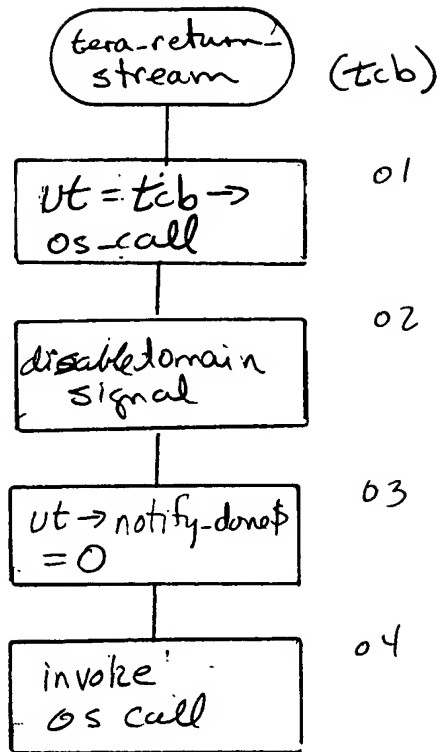 tera-return-
stream
(tcb)
ut = tcb →
os_call
01
disable domain
signal
02
ut → notify-done$
= 0
03
invoke
os call
04